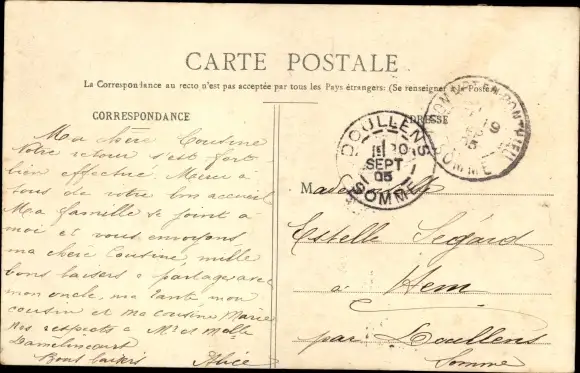 CARTE POSTALE
La Correspondance au recto n'est pas acceptée par tous les Pays étrangers: (Se renseigner à la Poste)
CORRESPONDANCE
ADRESSE
Ma chère Cousine
Notre retour s'est fort
bien effectué. Merci à
tous de votre bon accueil
Ma famille se joint à
moi et vous envoyons
ma chère Cousine, mille
bons baisers à partager avec
mon oncle, ma tante, mon
cousin et ma cousine Marie
Nos respects à Mr et Melle
Damelincourt
Bons baisers Alice
DOULLENS
20
SEPT
05
SOMME
SOMME
Mademoiselle
Estelle Ségard
à Hem
par Doullens
Somme